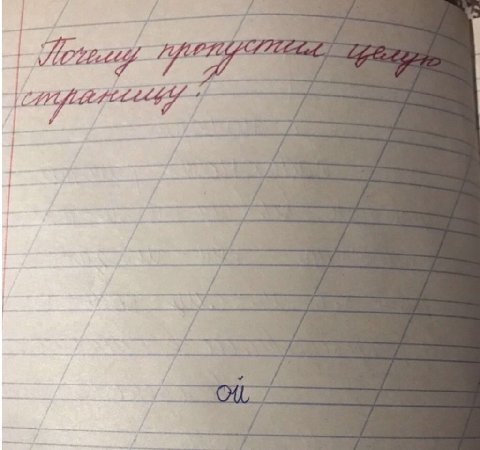 Почему пропустил целую
страницу?
ой